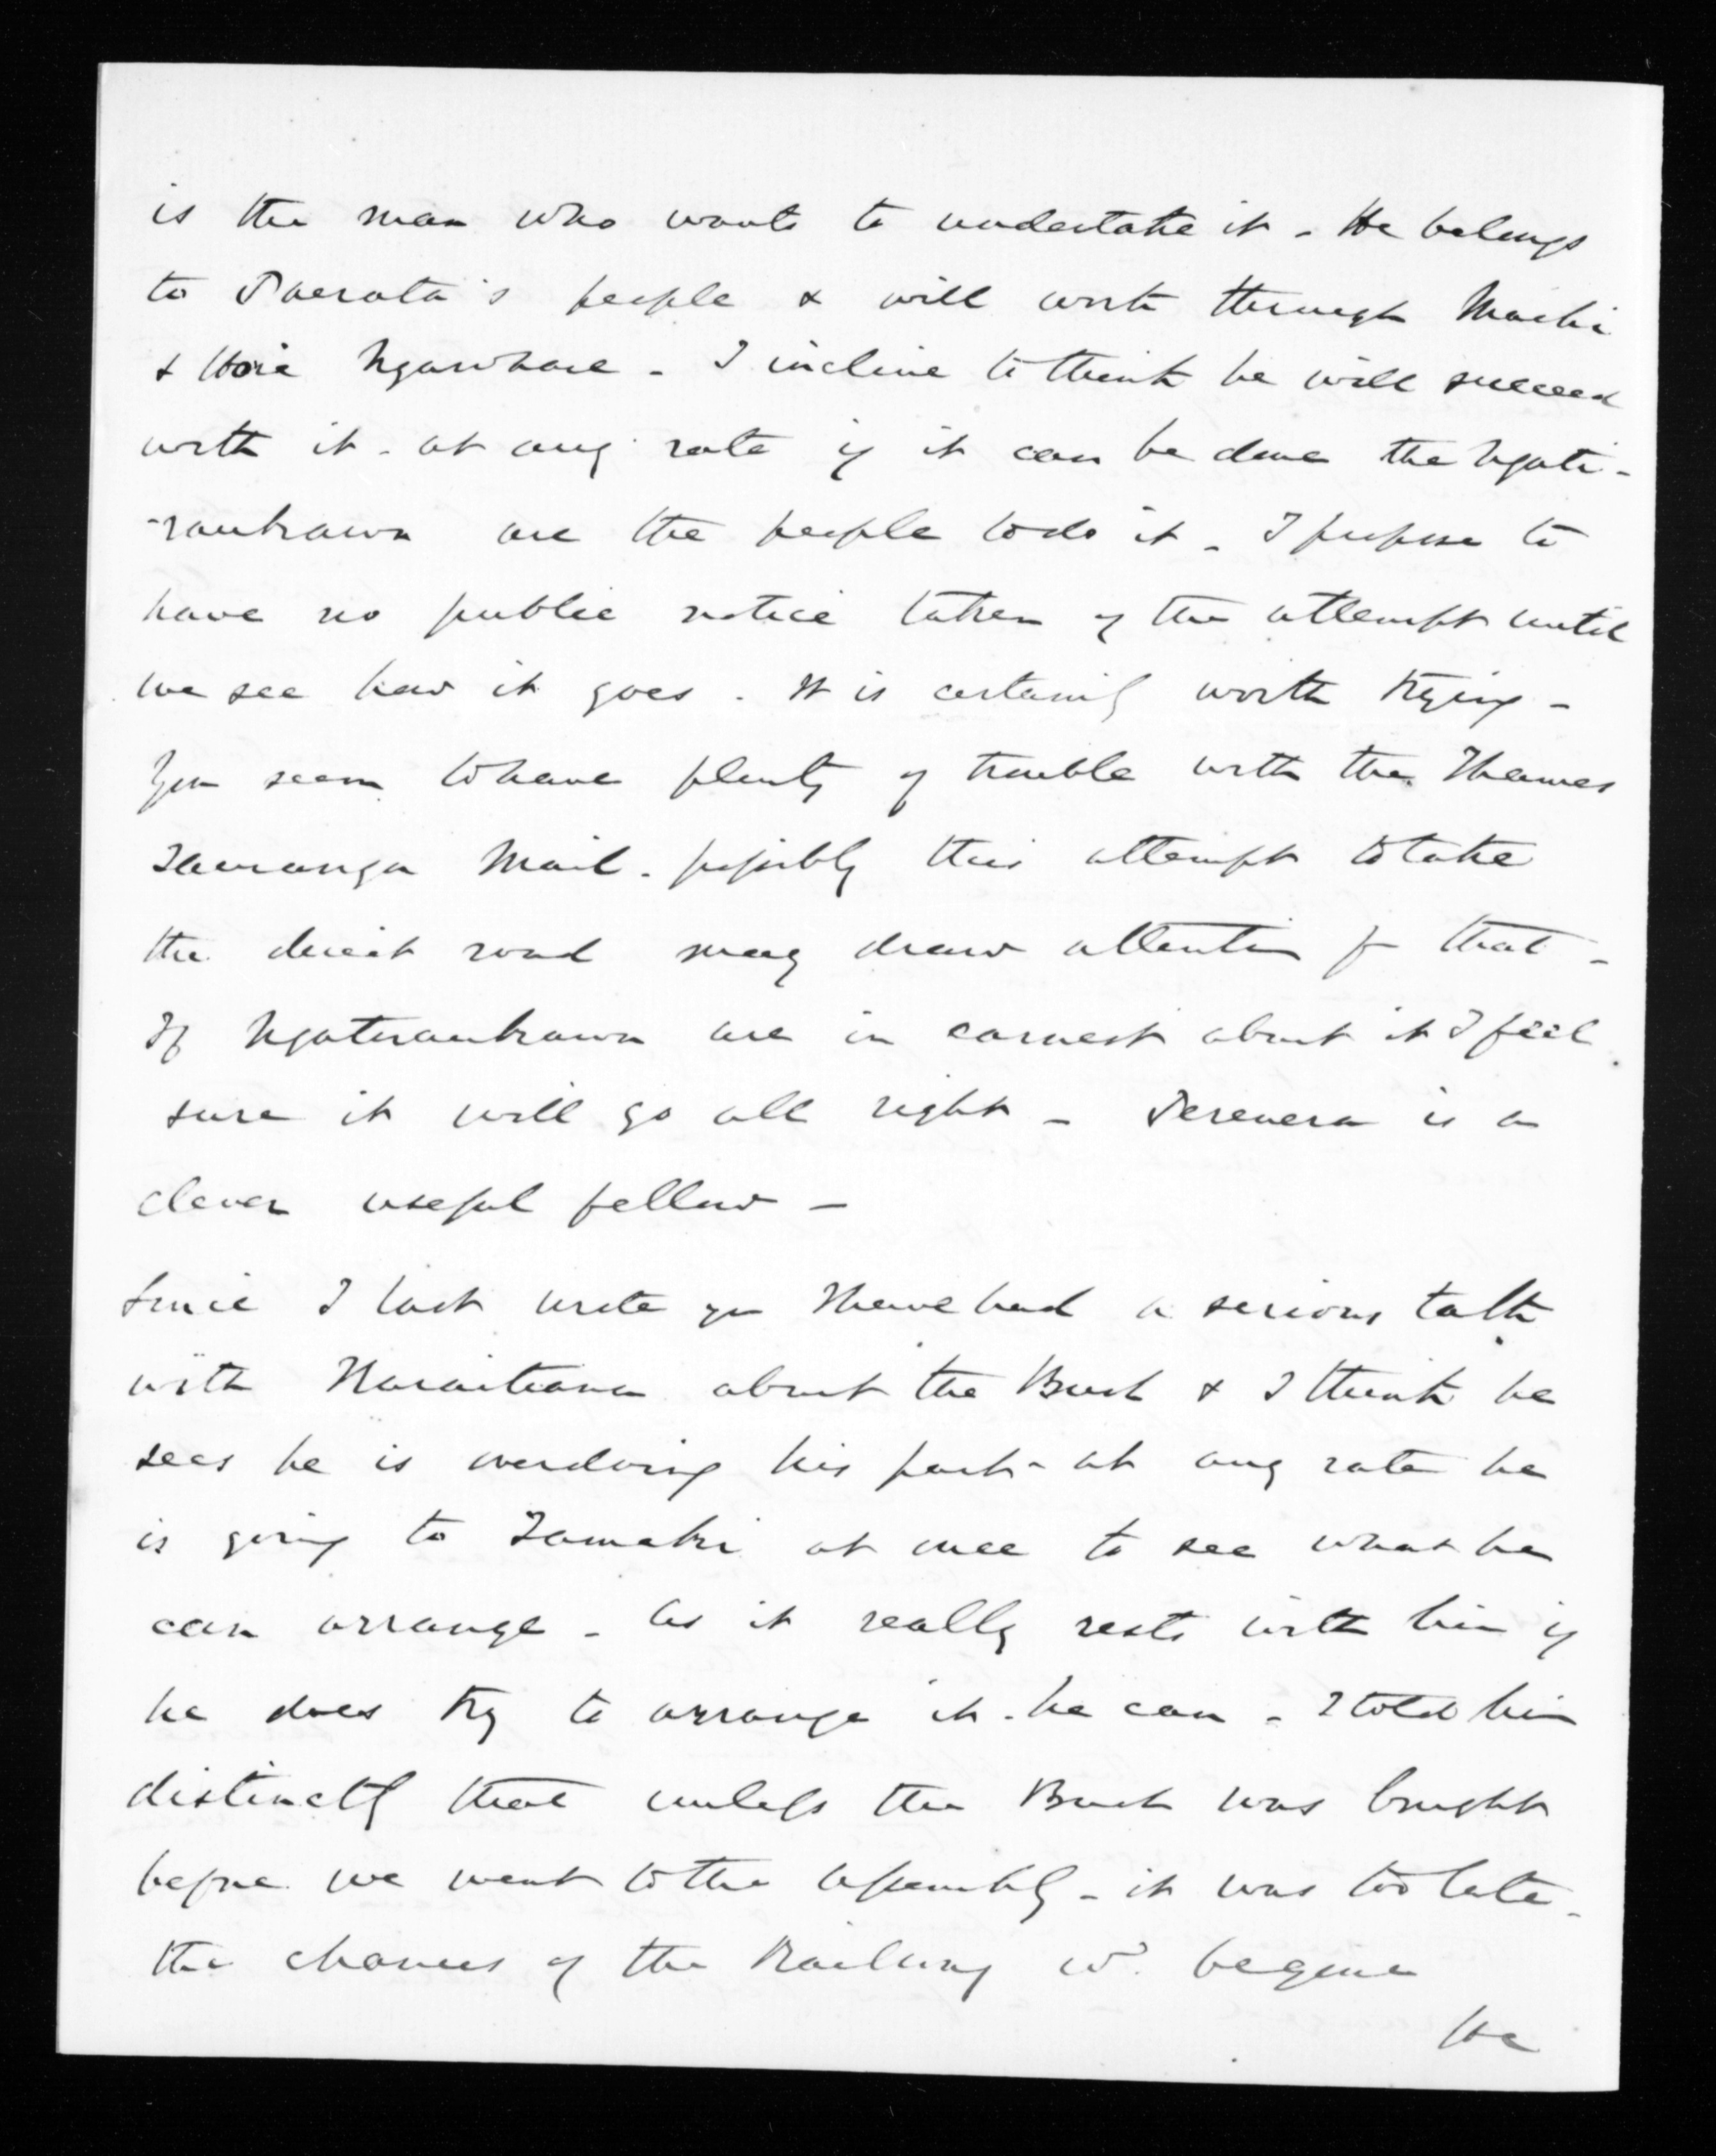 is the man who wants to undertake it - He belongs
to Paerata's people & will work through Maihi
& Hori Ngawhare - I incline to think he will succeed
with it - at any rate if it can be done the Ngati-
-raukawa are the people to do it - I propose to
have no public notice taken of the attempt until
we see how it goes. It is certainly worth trying -
You seem to have plenty of trouble with the Thames
Tauranga Mail - possibly this attempt to take
the direct road may draw attention fr that -
If Ngatiraukawa are in earnest about it I feel
sure it will go all right - is a
clever useful fellow -
Since I last wrote you I have had a serious talk
with Karaitiana about the Bush & I think he
sees he is overdoing his part - at any rate he
is going to Tamaki at once to see what he
can arrange - As it really rests with him if
he does try to arrange it - he can - I told him
distinctly that unless the Bush was bought
before we went to the Assembly - it was too late -
the chances of the Railway wd. be gone
He